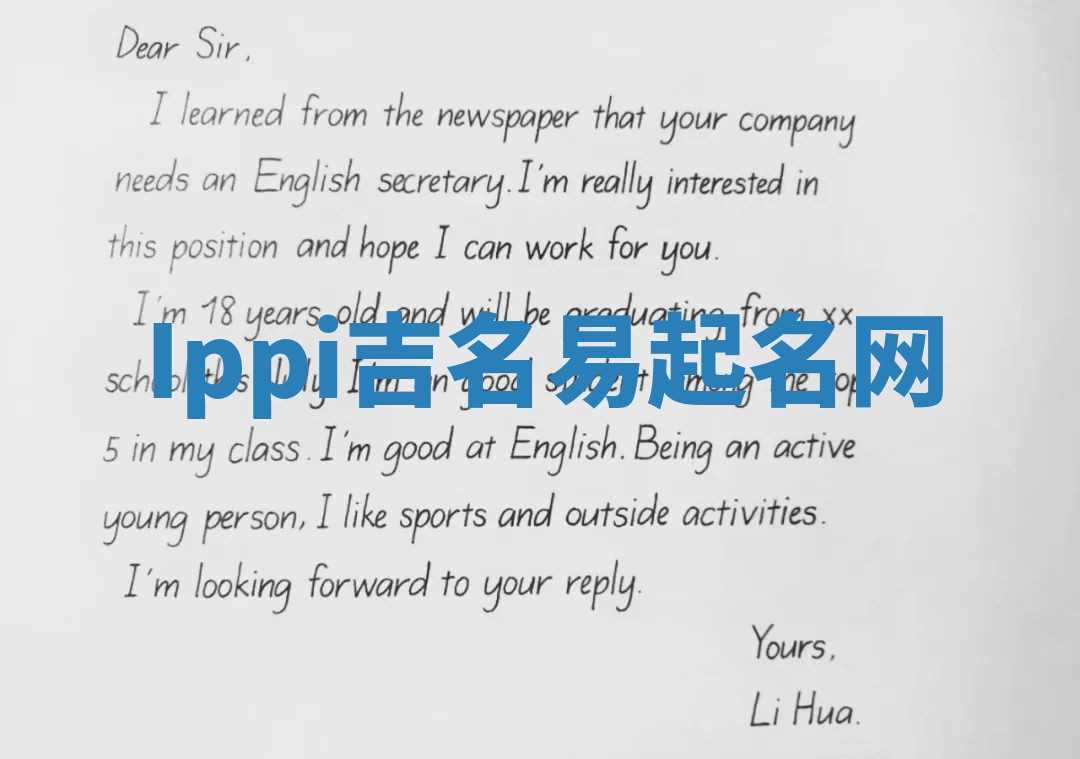 Dear Sir,
I learned from the newspaper that your company
needs an English secretary. I'm really interested in
this position and hope I can work for you.
I'm 18 years old and will be graduating from xx
school this July. I'm an good student among the top
lppi吉名易起名网
5 in my class. I'm good at English. Being an active
young person, I like sports and outside activities.
I'm looking forward to your reply.
Yours,
Li Hua.